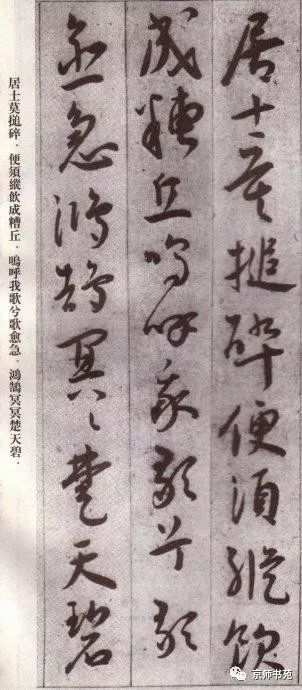 居士莫搥碎便須縱飲
成糟丘嗚呼我歌兮歌
愈急鴻鵠冥冥楚天碧
居士莫搥碎．便須縱飲成糟丘．嗚呼我歌兮歌愈急．鴻鵠冥冥楚天碧．
京师书苑